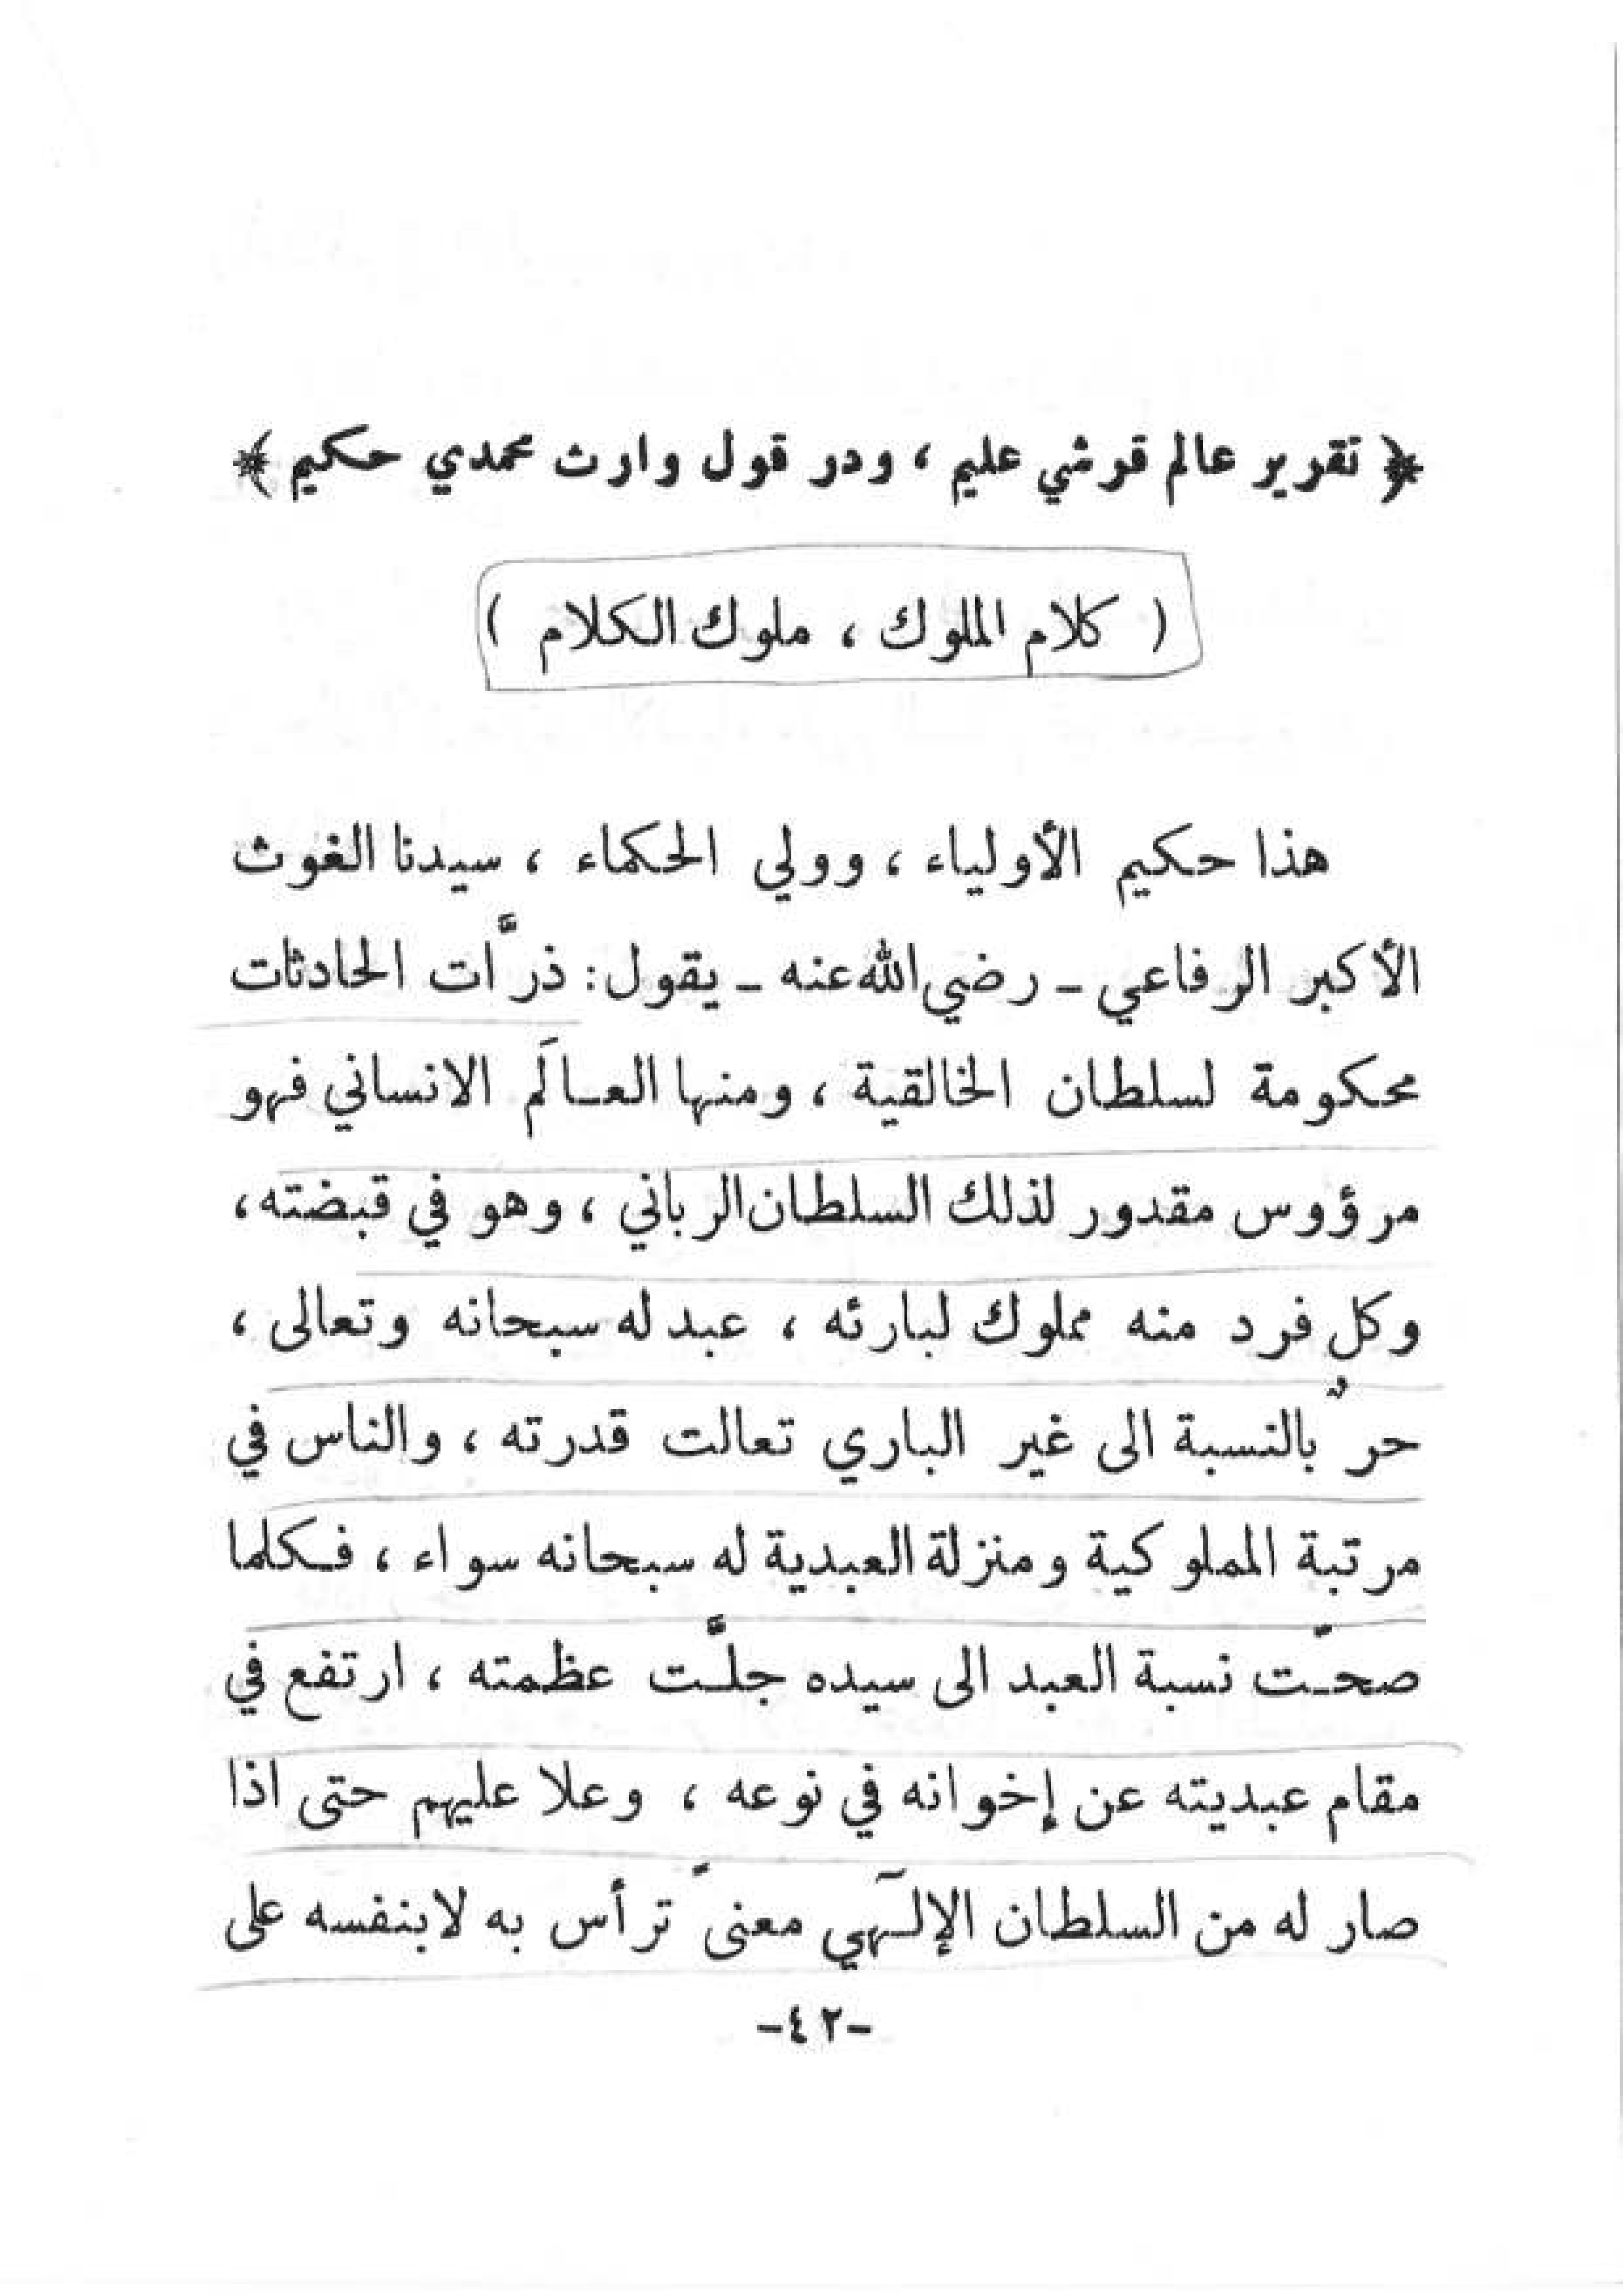 ﴿ تقرير عالم قرشي عليم ، ودر قول وارث محمدي حكيم ﴾
( كلام الملوك ، ملوك الكلام )
هذا حكيم الأولياء ، وولي الحكماء ، سيدنا الغوث
الأكبر الرفاعي ـ رضي الله عنه ـ يقول : ذرَّات الحادثات
محكومة لسلطان الخالقية ، ومنها العـالَم الانساني فهو
مرؤوس مقدور لذلك السلطان الرباني ، وهو في قبضته ،
وكل فرد منه مملوك لبارئه ، عبد له سبحانه وتعالى ،
حرٌ بالنسبة الى غير الباري تعالت قدرته ، والناس في
مرتبة المملوكية ومنزلة العبدية له سبحانه سواء ، فـكلما
صحـّت نسبة العبد الى سيده جلـَّت عظمته ، ارتفع في
مقام عبديته عن إخوانه في نوعه ، وعلا عليهم حتى اذا
صار له من السلطان الإلـٓهي معنىً ترأس به لا بنفسه على
-٤٢-